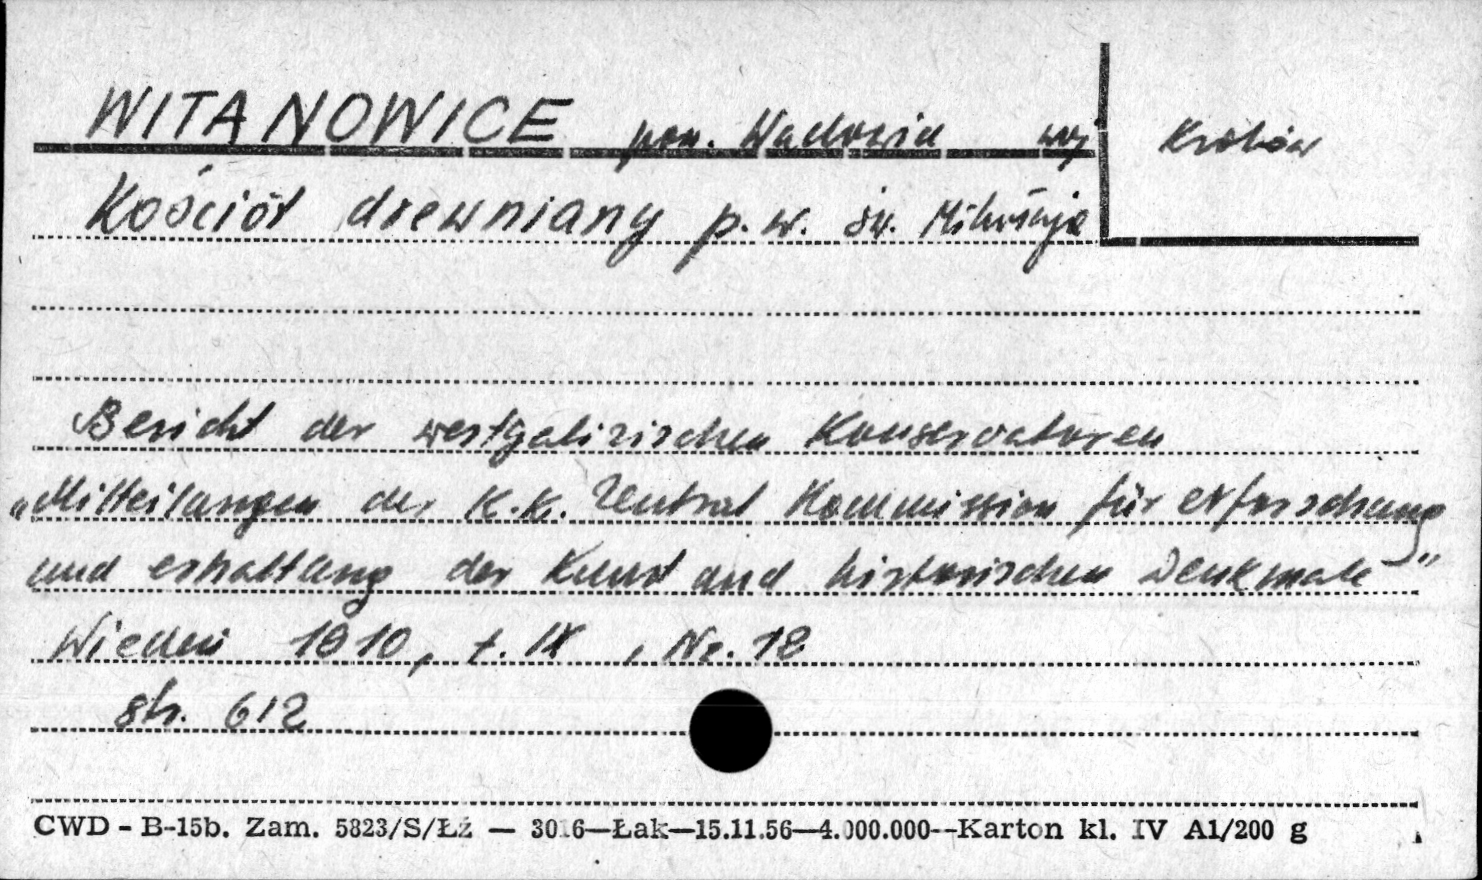 WITANOWICE pow. Wadowice woj Kraków
Kościół drewniany p.w. św. Mikołaja
Bericht der westgalizischen Konservatoren
„Mitteilungen der K.K. Zentral Kommission für erforschung
und erhaltung der Kunst und historischen Denkmale"
Wiedeń 1910, t. IX, Nr. 12
str. 612
CWD - B-15b. Zam. 5823/S/Łż — 3016—Łak—15.11.56—4.000.000--Karton kl. IV A1/200 g